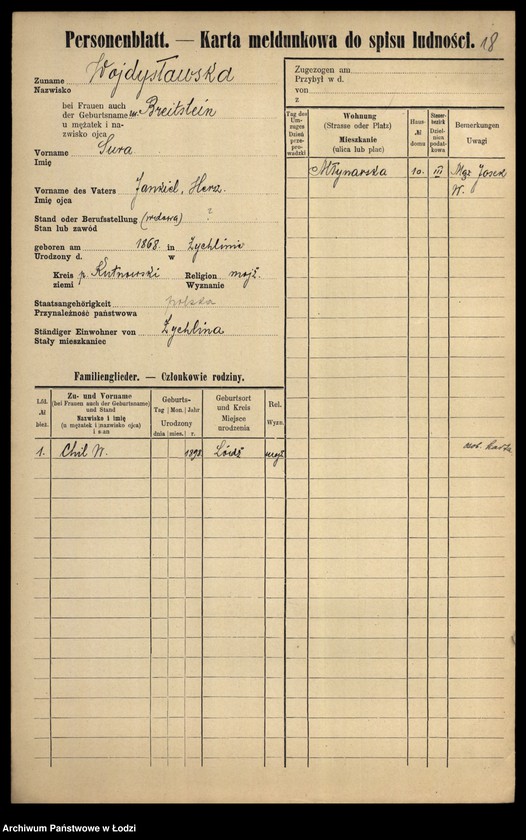 Personenblatt. — Karta meldunkowa do spisu ludności. 18
Zuname Wojdysławska
Nazwisko
bei Frauen auch
der Geburtsname Breitstein
u mężatek i na-
zwisko ojca
Vorname Sura
Imię
Vorname des Vaters Jankiel, Herz.
Imię ojca
Stand oder Berufsstellung (wdowa) ?
Stan lub zawód
geboren am 1868. in Żychlinie
Urodzony d. w
Kreis p. Kutnowski Religion mojż.
ziemi Wyznanie
Staatsangehörigkeit polska
Przynależność państwowa
Ständiger Einwohner von Żychlina
Stały mieszkaniec
Familienglieder. — Członkowie rodziny.
Lfd. № bież.
Zu- und Vorname
(bei Frauen auch der Geburtsname)
und Stand
Nazwisko i imię
(u mężatek i nazwisko ojca)
i stan
Geburts-
Tag Mon. Jahr
Urodzony
dnia mies. r.
Geburtsort
und Kreis
Miejsce
urodzenia
Rel.
Wyzn.
1. Chil W. 1898. Łódź mojż.
Zugezogen am
Przybył w d.
von
z
Tag des
Um-
zuges
Dzień
prze-
prowadzki
Wohnung
(Strasse oder Platz)
Mieszkanie
(ulica lub plac)
Haus-
№
domu
Steuer-
bezirk
Dziel-
nica
podat-
kowa
Bemerkungen
Uwagi
Młynarska 10. III Mąż Josek
W.
zob. karta
Archiwum Państwowe w Łodzi